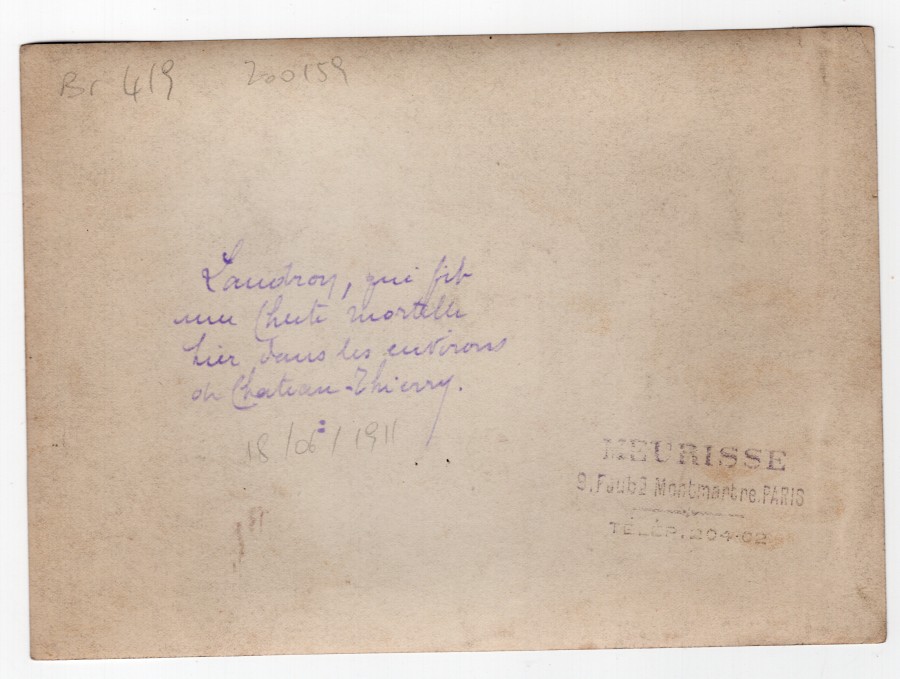 Br 419 200159
Landron, qui fit
une Chute mortelle
hier dans les environs
de Chateau-Thierry.
18/06/1911
MEURISSE
9, Faubg Montmartre. PARIS
TÉLÉP. 204-02